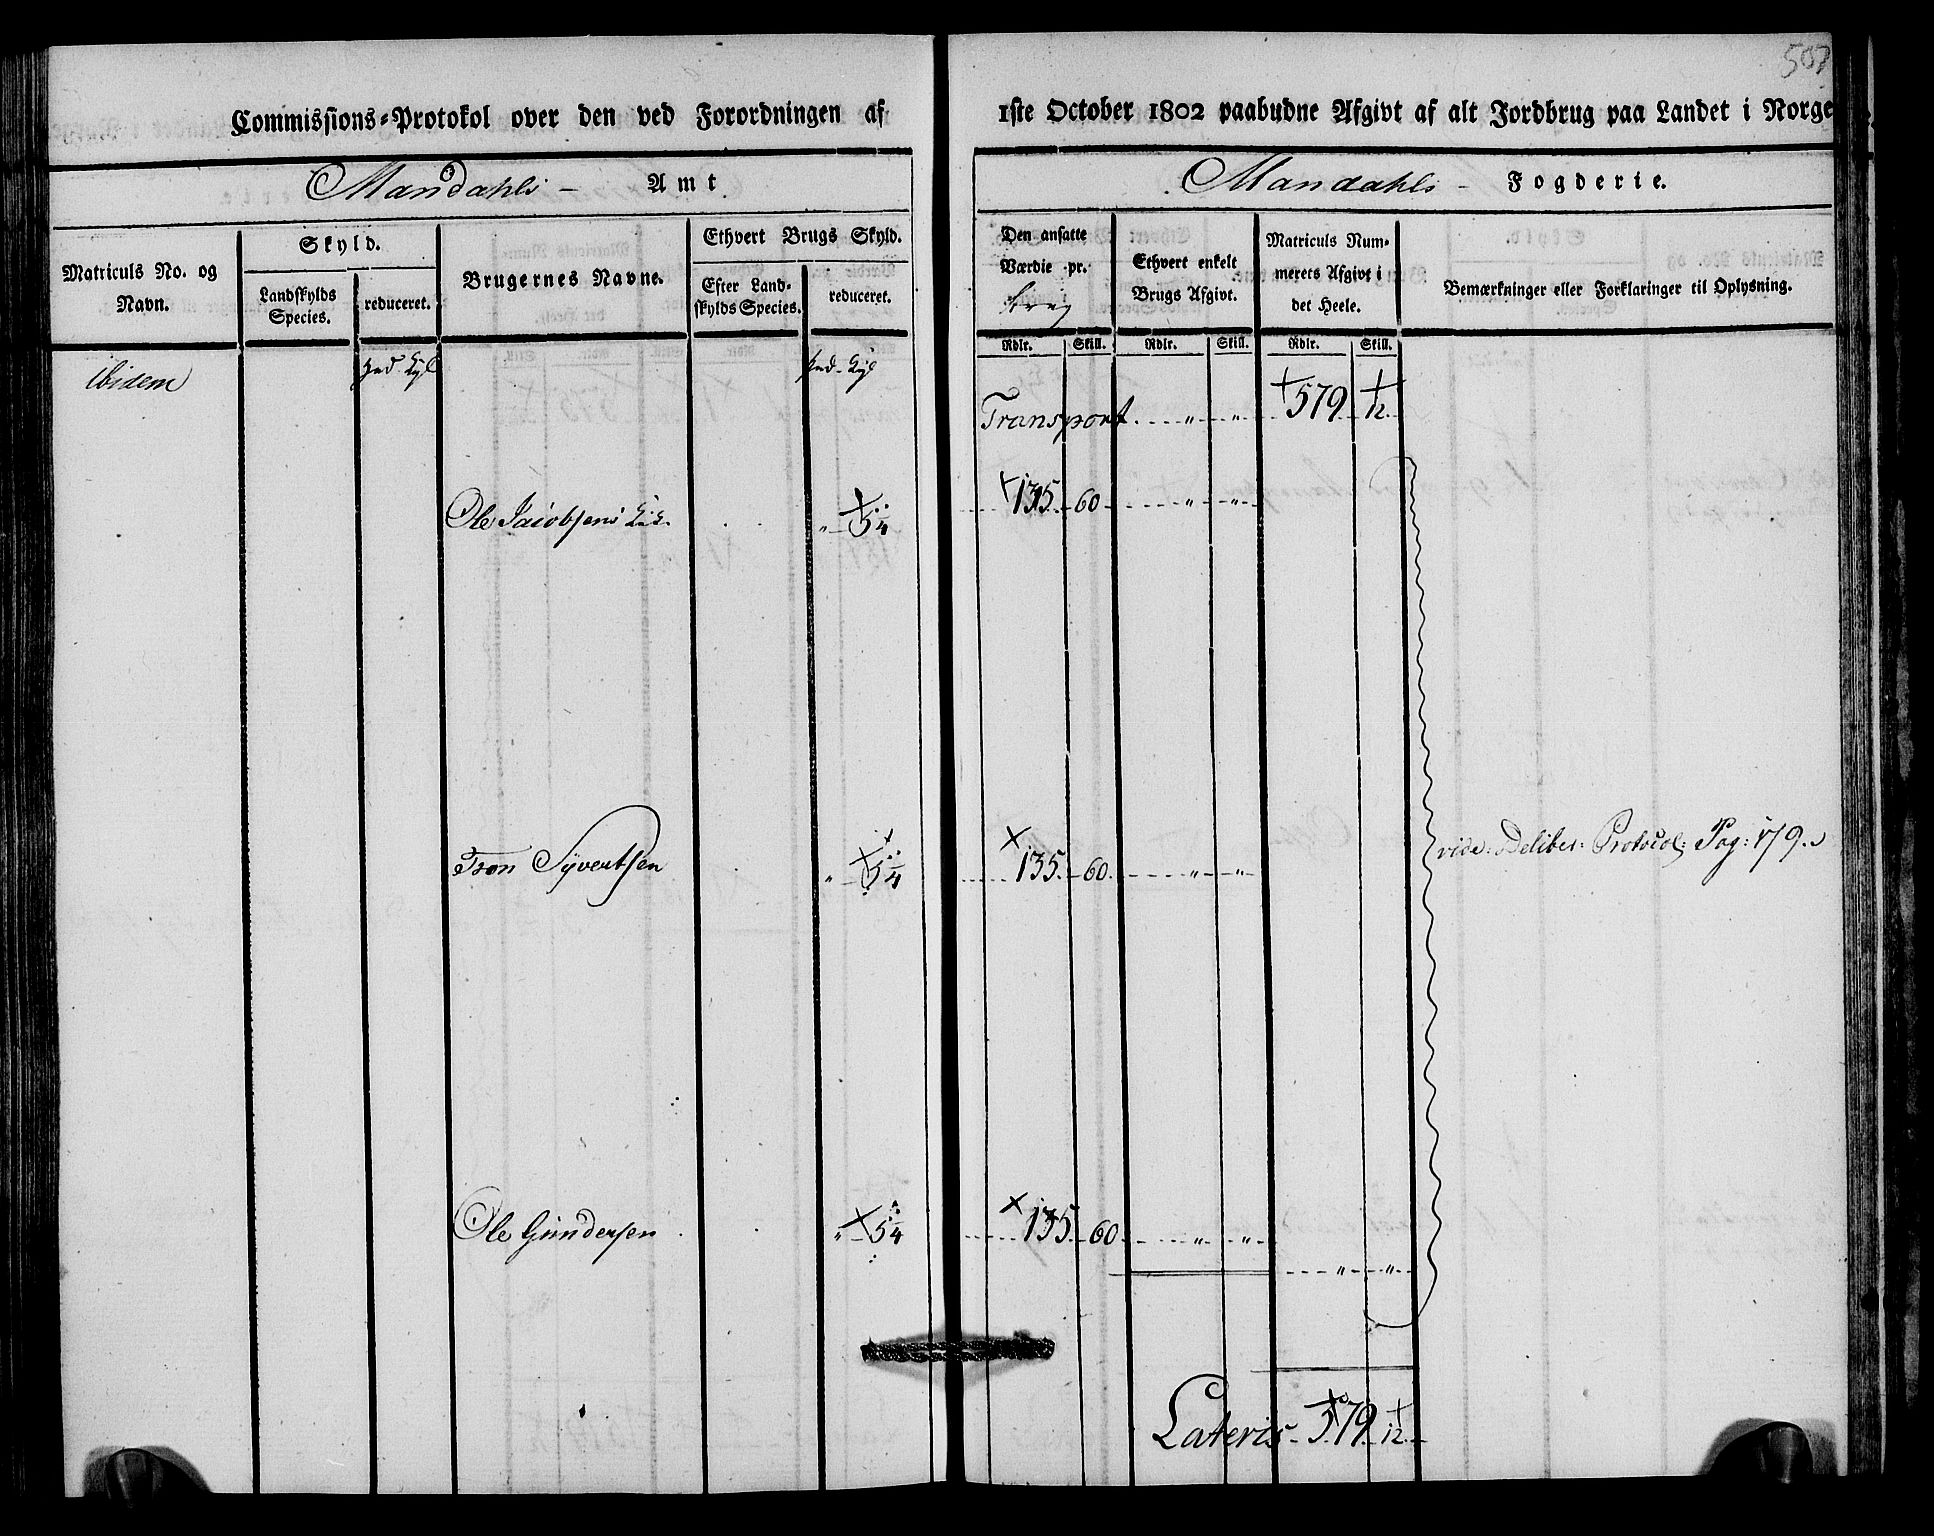 507
Commissions-Protokol over den ved Forordningen af 1ste October 1802 paabudne Afgivt af alt Jordbrug paa Landet i Norge
Mandahls - Amt.
Mandahls - Fogderie.
Matriculs No. og Navn.
Skyld.
Landskylds Species.
reduceret.
Brugernes Navne.
Ethvert Brugs Skyld.
Efter Landskylds Species.
reduceret.
Den ansatte Værdie pr.
Ethvert enkelt Brugs Afgivt.
Matriculs Nummerets Afgivt i det Heele.
Bemærkninger eller Forklaringer til Oplysning.
Rdlr. Skill. Rdlr. Skill. Rdlr. Skill.
ibidem
Transport " " 579 12
Ole Jacobsens 5/4 135 60 " "
Tron Syvertsen " 5/4 135 60 " "
vide: Deliber: Protocol: Pag: 179.
Ole Gundersen " 5/4 135 60 " "
" "
Lateris 579 12